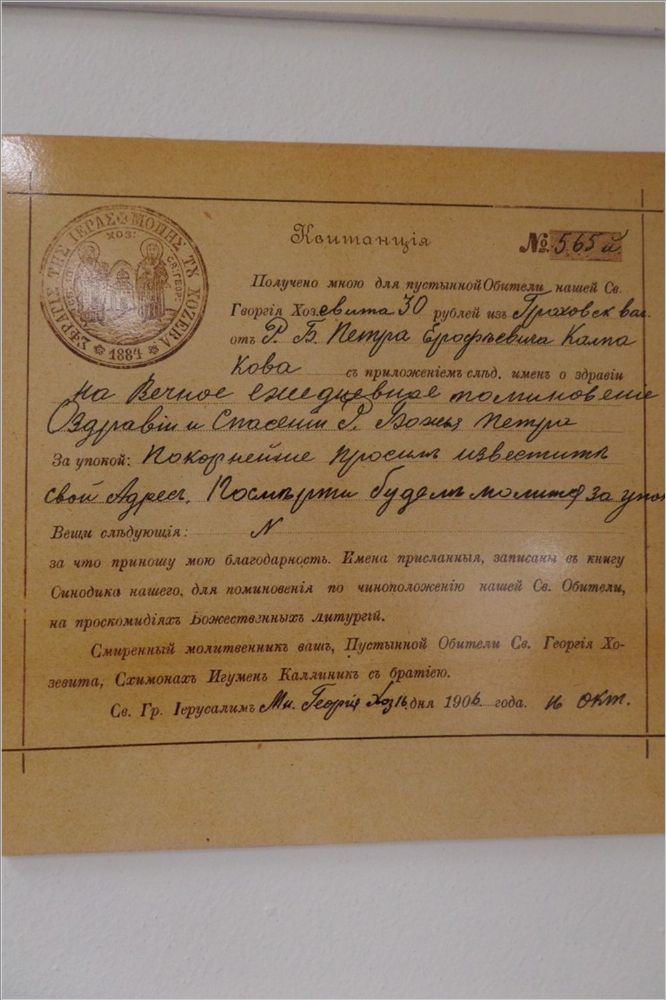 ΣΦΡΑΓΙΣ ΤΗΣ ΙΕΡΑΣ ΜΟΝΗΣ ΤΥ ΧΟΖΕΒΑ
ΧΟΖ:
1884
Квитанція
№ 565й
Получено мною для пустынной Обители нашей Св.
Георгія Хозевита 30 рублей изъ Проховск вол.
отъ Р. Б. Петра Ерофѣевича Калпа
кова съ приложеніемъ слѣд. именъ о здравіи
на Вечное ежедневное поминовеніе
О здравіи и Спасеніи Р. Божья Петра
За упокой: Покорнейше просимъ известить
свой Адресъ. Посмерти будемъ молится за упок
Вещи слѣдующія: N
за что приношу мою благодарность. Имена присланныя, записаны въ книгу
Синодика нашего, для поминовенія по чиноположенію нашей Св. Обители,
на проскомидіяхъ Божественныхъ литургій.
Смиренный молитвенникъ вашъ, Пустынной Обители Св. Георгія Хо-
зевита, Схимонахъ Игуменъ Каллиникъ съ братіею.
Св. Гр. Іерусалимъ Мн. Георгія Хоз 16 дня 1906 года. 16 окт.